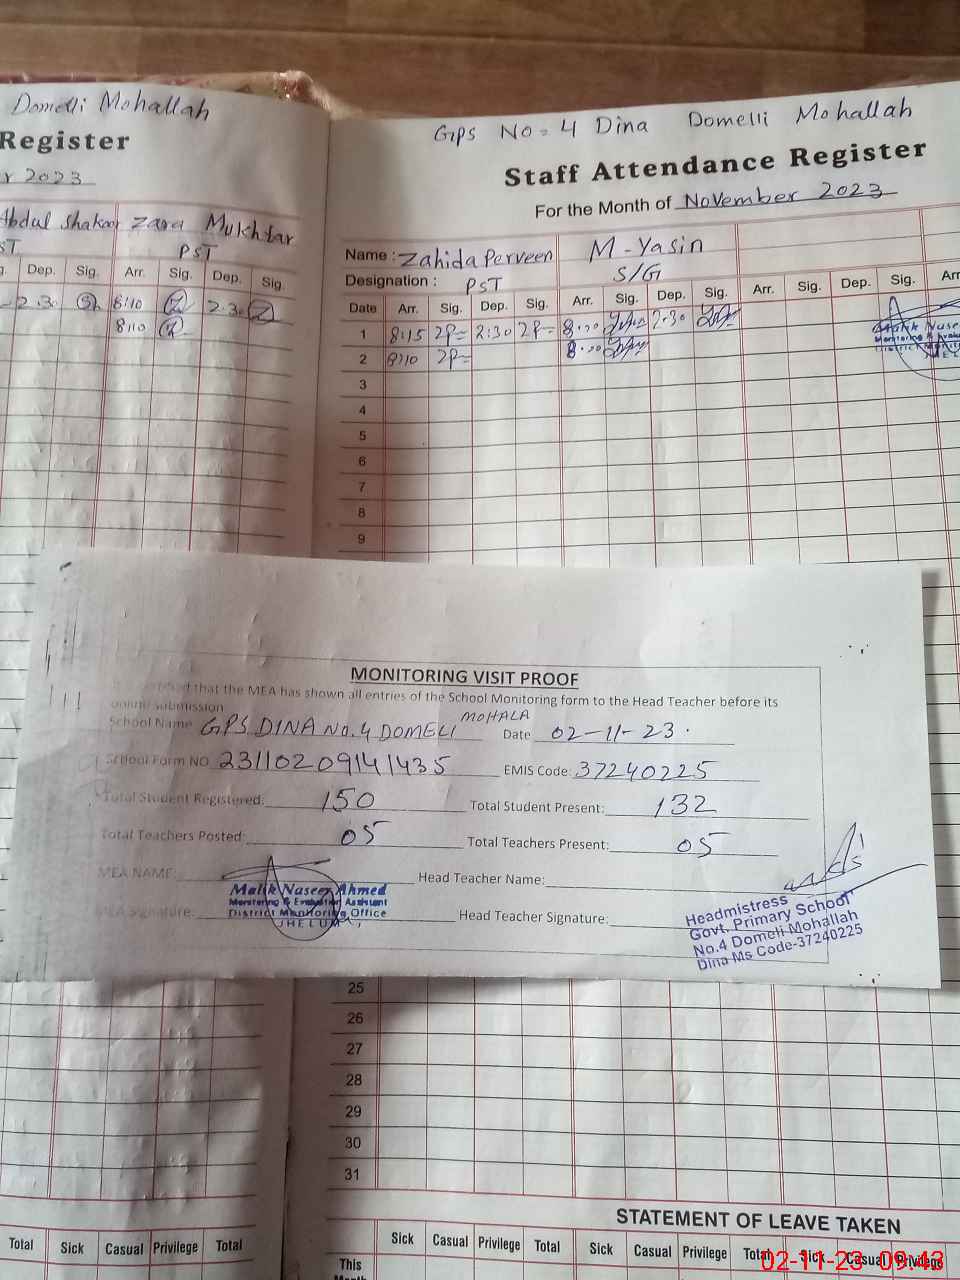 Domelli Mohallah
Register
r 2023
Abdul Shakoor Zara Mukhtar
ST PST
Dep. Sig. Arr. Sig. Dep. Sig.
2.30 8:10 2.30
8:10
GPS NO = 4 Dina Domelli Mohallah
Staff Attendance Register
For the Month of November 2023
Name : Zahida Perveen M-Yasin
Designation : PST S/G
Date Arr. Sig. Dep. Sig. Arr. Sig. Dep. Sig. Arr. Sig. Dep. Sig. Arr
1 8:15 ZP 2:30 ZP 2.30
2 8:10 ZP
3
4
5
6
7
8
9
Malik Nase
MONITORING VISIT PROOF
that the MEA has shown all entries of the School Monitoring form to the Head Teacher before its
online submission
School Name GPS DINA NO.4 DOMELI MOHALA Date 02-11-23.
School Form NO 23110209141435 EMIS Code: 37240225
Total Student Registered: 150 Total Student Present: 132
Total Teachers Posted: 05 Total Teachers Present: 05
MEA NAME: Head Teacher Name:
Malik Naseer Ahmed
Monitoring & Evaluation Assistant
District Monitoring Office
JHELUM
MEA Signature: Head Teacher Signature:
Headmistress
Govt. Primary School
No.4 Domeli Mohallah
Dina Ms Code-37240225
25
26
27
28
29
30
31
STATEMENT OF LEAVE TAKEN
Total Sick Casual Privilege Total
Sick Casual Privilege Total Sick Casual Privilege Total Sick Casual Privilege
This
Month
02-11-23 09:43